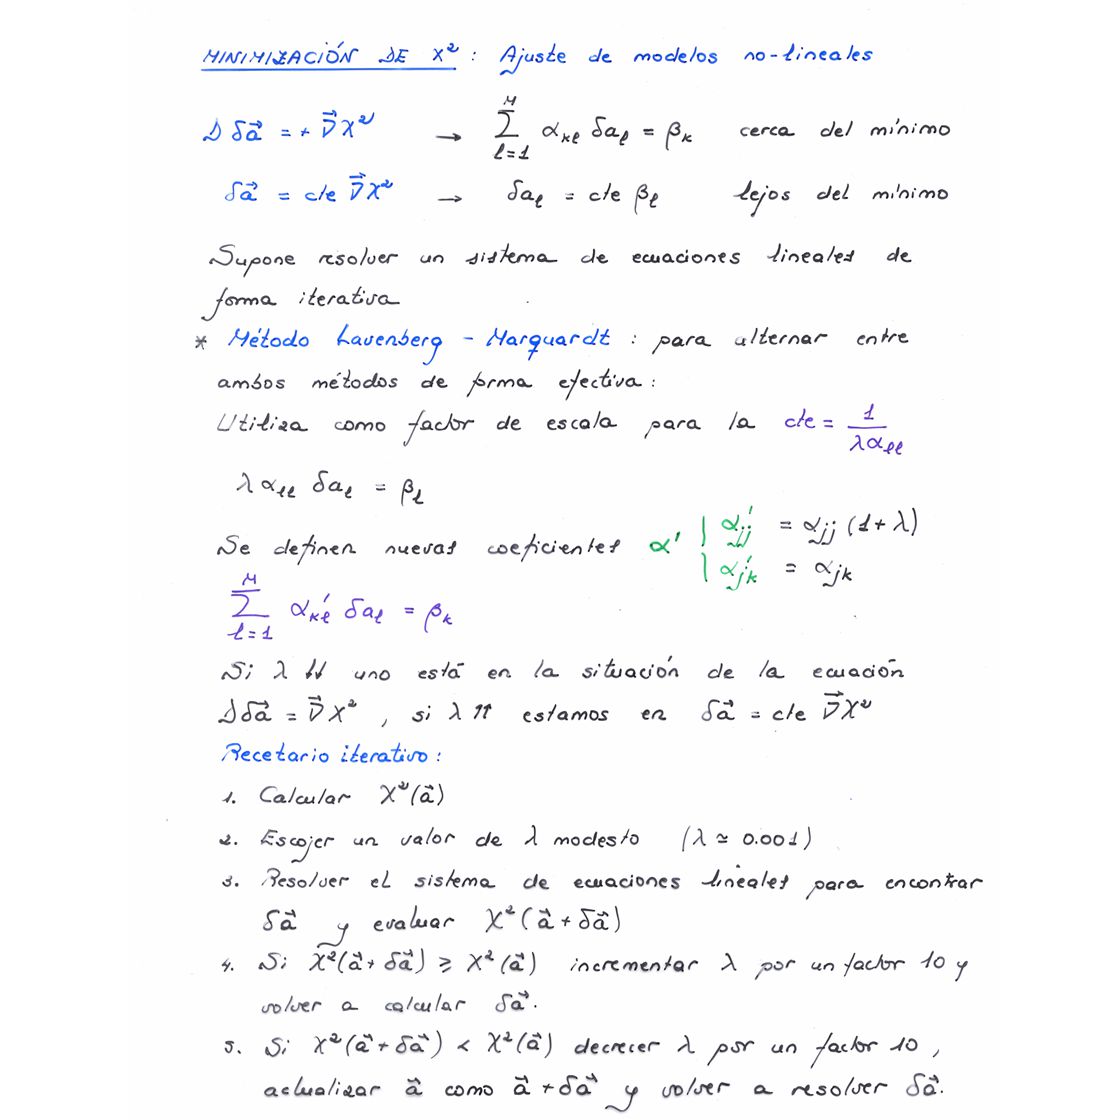 MINIMIZACIÓN DE χ² : Ajuste de modelos no-lineales
D δa⃗ = + ∇⃗χ² → ∑_{l=1}^{M} α_{kl} δa_l = β_k cerca del mínimo
δa⃗ = cte ∇⃗χ² → δa_l = cte β_l lejos del mínimo
Supone resolver un sistema de ecuaciones lineales de
forma iterativa
* Método Lavenberg - Marquardt : para alternar entre
ambos métodos de forma efectiva :
Utiliza como factor de escala para la cte = 1/(λα_{ll})
λ α_{ll} δa_l = β_l
Se definen nuevos coeficientes α' | α'_{jj} = α_{jj} (1+λ)
| α'_{jk} = α_{jk}
∑_{l=1}^{M} α'_{kl} δa_l = β_k
Si λ ↓↓ uno está en la situación de la ecuación
D δa⃗ = ∇⃗χ² , si λ ↑↑ estamos en δa⃗ = cte ∇⃗χ²
Recetario iterativo :
1. Calcular χ²(a⃗)
2. Escojer un valor de λ modesto (λ ≃ 0.001)
3. Resolver el sistema de ecuaciones lineales para encontrar
δa⃗ y evaluar χ²(a⃗ + δa⃗)
4. Si χ²(a⃗ + δa⃗) ⩾ χ²(a⃗) incrementar λ por un factor 10 y
volver a calcular δa⃗.
5. Si χ²(a⃗ + δa⃗) < χ²(a⃗) decrecer λ por un factor 10 ,
actualizar a⃗ como a⃗ + δa⃗ y volver a resolver δa⃗.